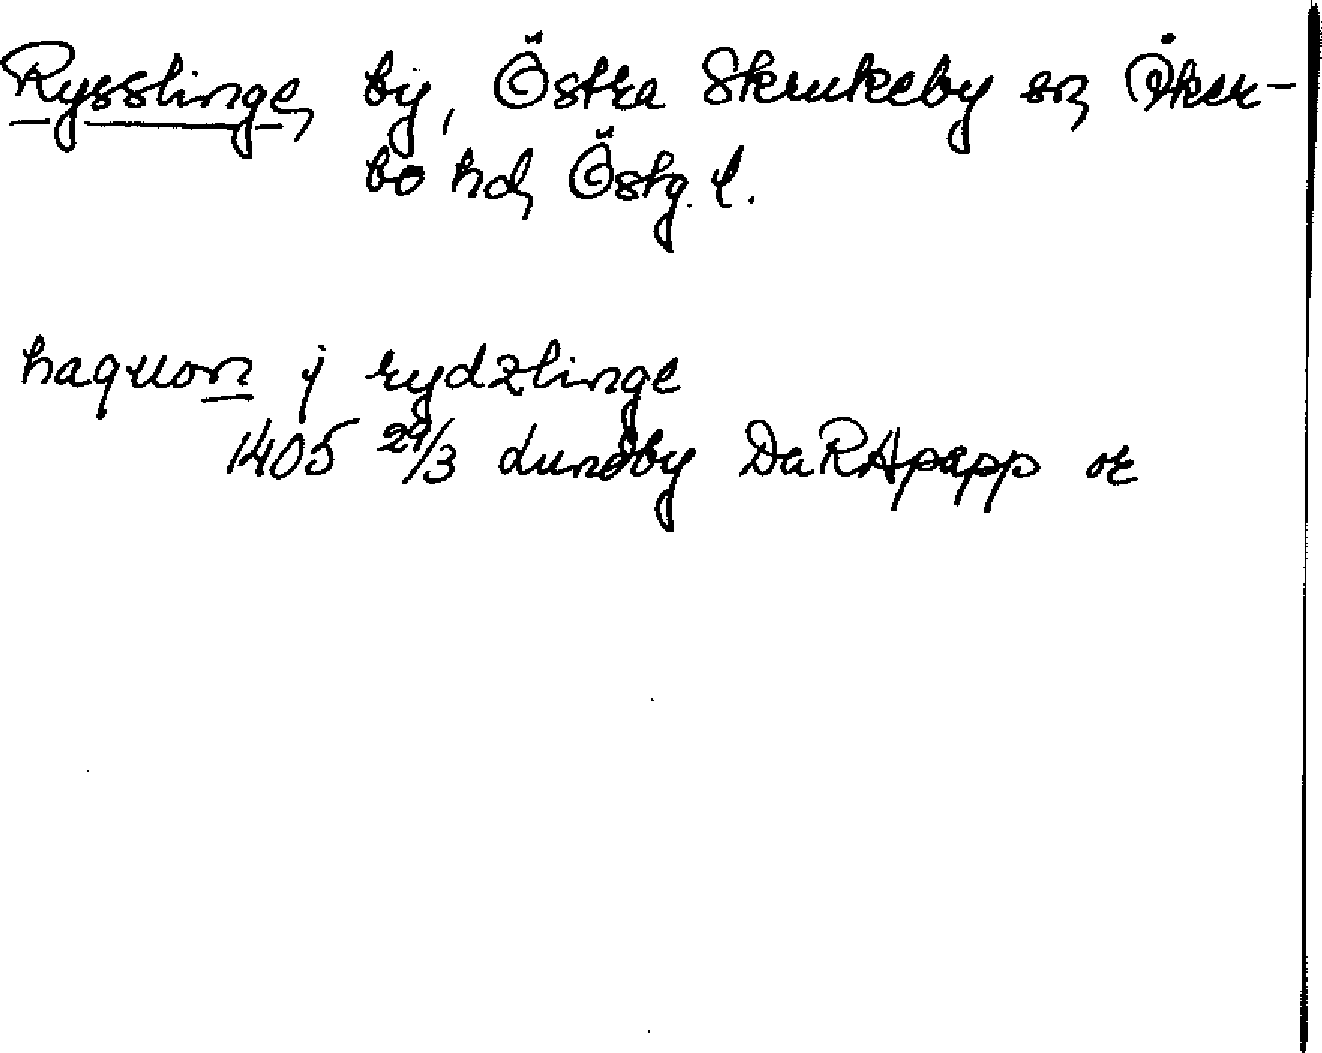 Rysslinge, by, Östra Skrukeby sn, Åker-
bo hd, Östg. l.
haquon j rydzlinge
1405 29/3 Lundby DaRApapp or